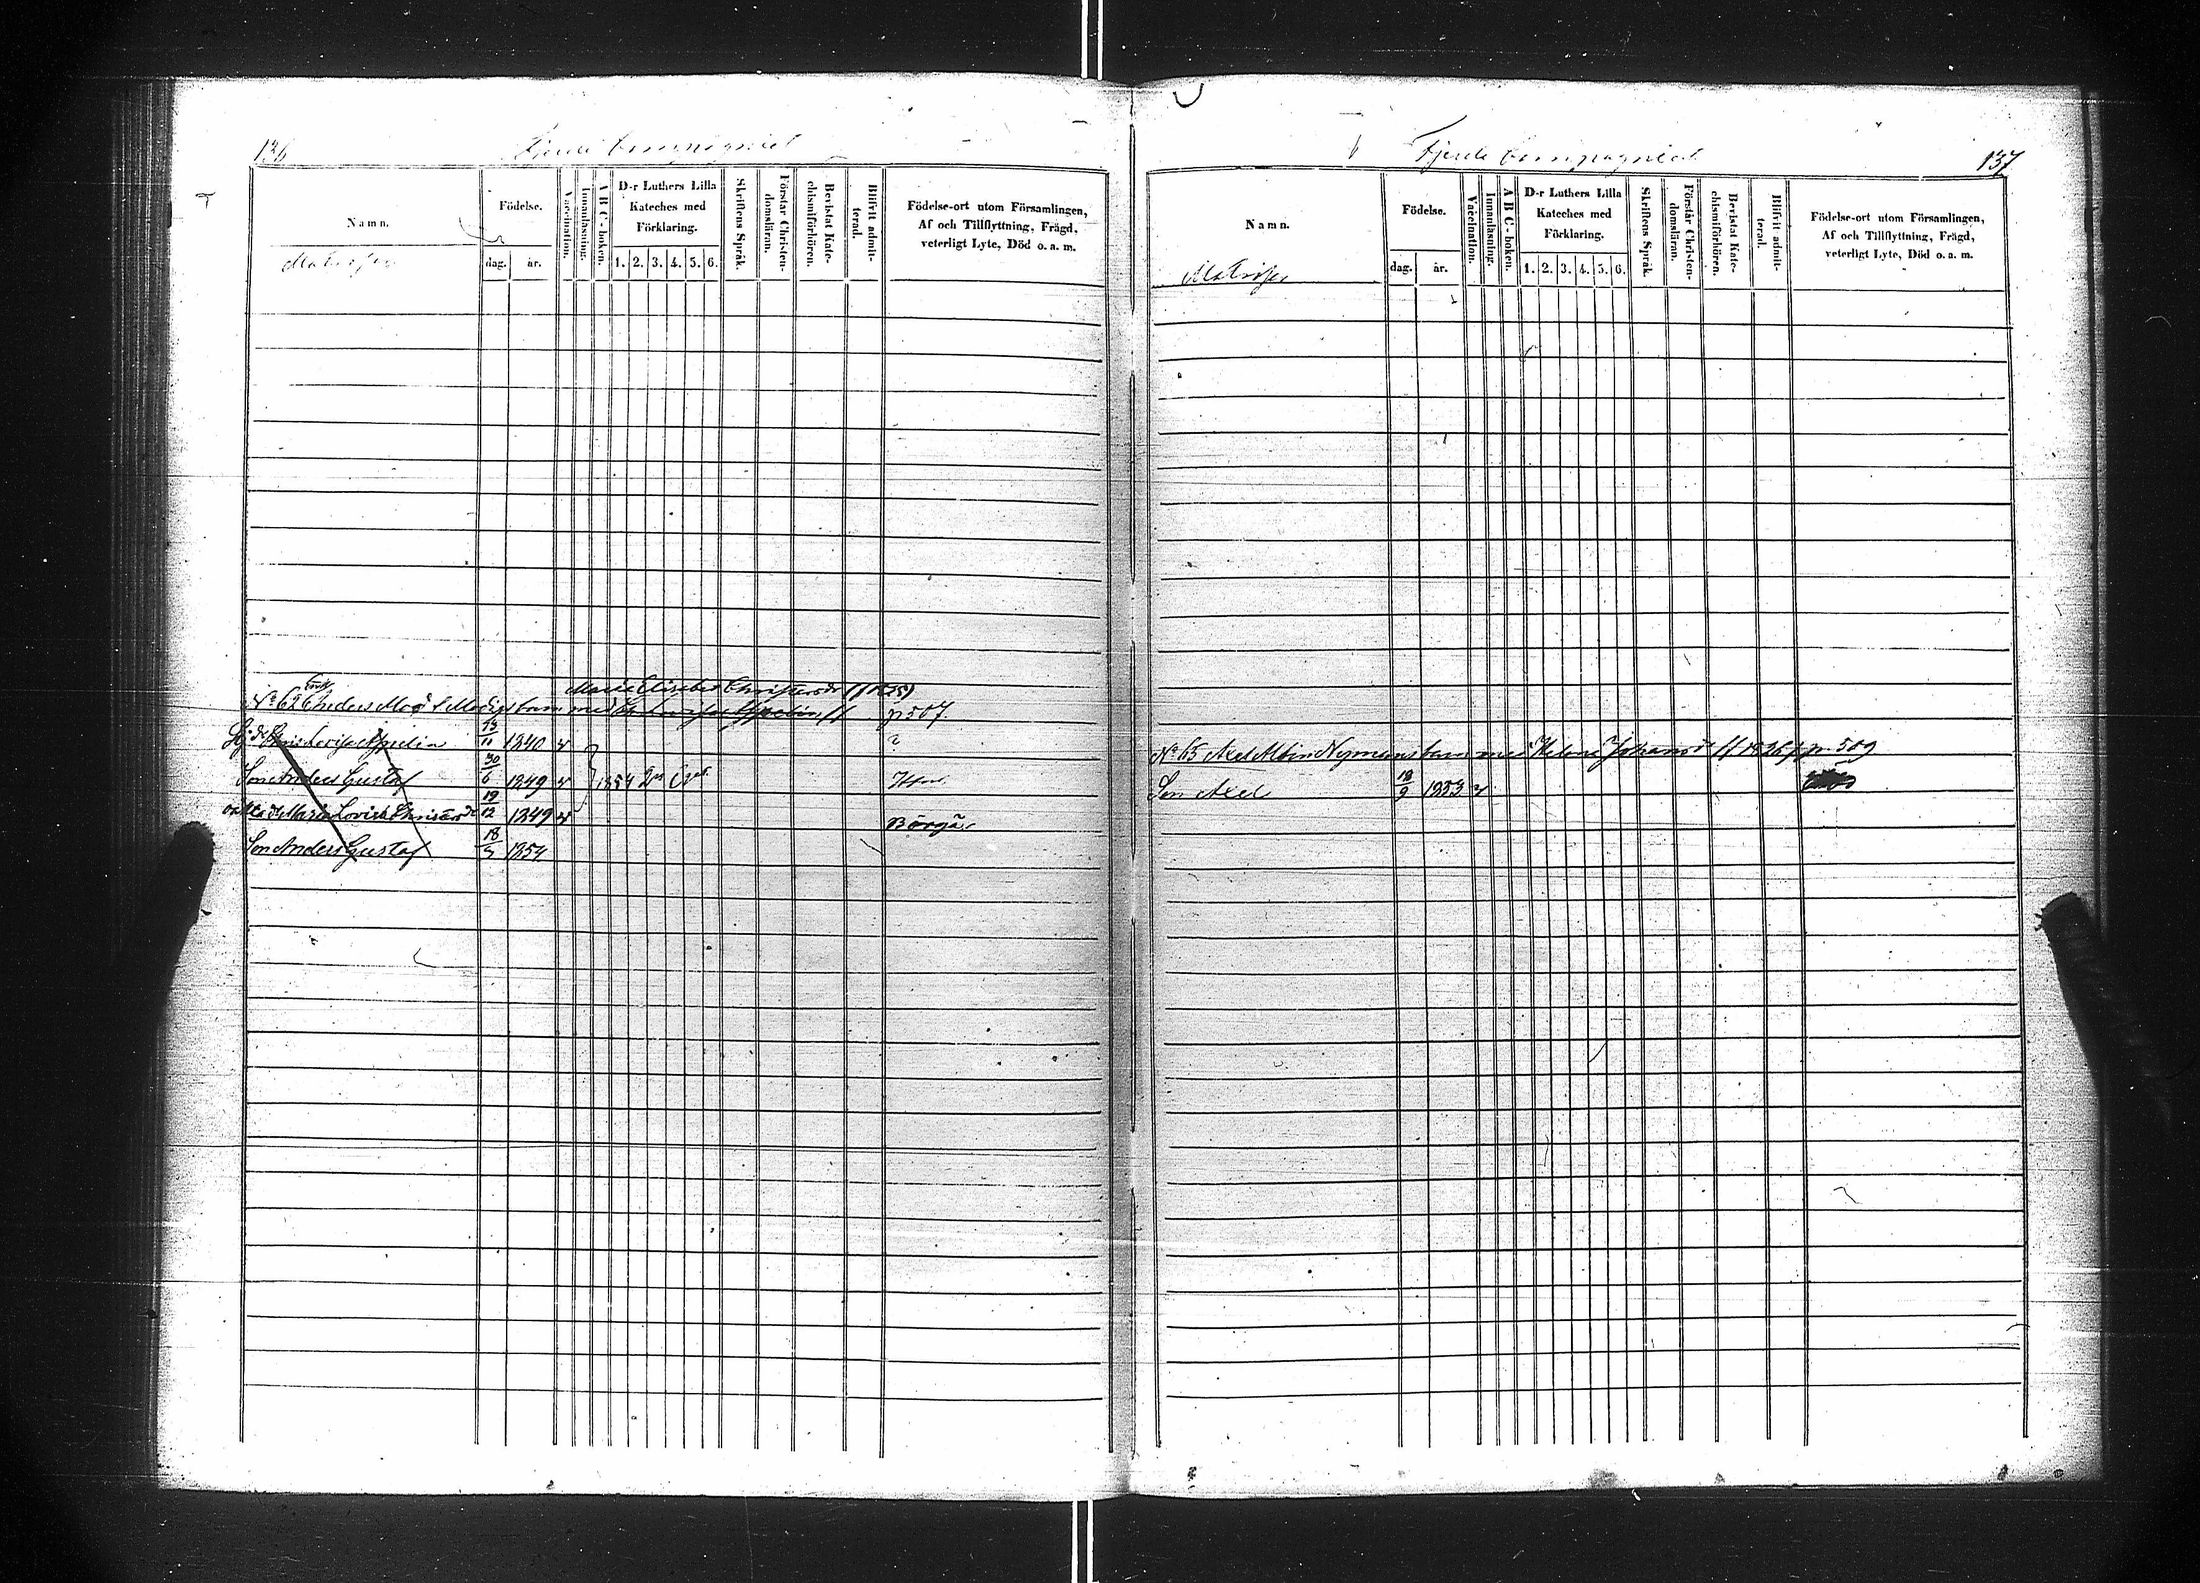 136
Fjerde Compagniet
Namn.
Födelse.
dag. år.
Vaccination.
Innanläsning.
A B C-boken.
D-r Luthers Lilla Kateches med Förklaring.
1. 2. 3. 4. 5. 6.
Skriftens Språk.
Förstår Christendomsläran.
Bevistat Katechismiförhören.
Blifvit admitterad.
Födelse-ort utom Församlingen, Af och Tillflyttning, Frägd, veterligt Lyte, Död o. a. m.
Matroser
Maria Elisabet
N:o 62 barn med p 507.
13/11 1840 v
Son Anders Gustaf 30/6 1849 v 1854
Maria Lovisa 19/12 1849 v Borgå
Son Anders Gustaf 18/5 1854
Fjerde Compagniet
137
Namn.
Födelse.
dag. år.
Vaccination.
Innanläsning.
A B C-boken.
D-r Luthers Lilla Kateches med Förklaring.
1. 2. 3. 4. 5. 6.
Skriftens Språk.
Förstår Christendomsläran.
Bevistat Katechismiförhören.
Blifvit admitterad.
Födelse-ort utom Församlingen, Af och Tillflyttning, Frägd, veterligt Lyte, Död o. a. m.
Matroser
N:o 65 Axel Albin Nymans barn med Helena p. 509
Son Axel 18/9 1853 v